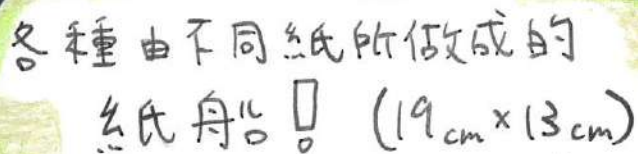 各種由不同紙所做成的
紙船！（19cm×13cm）